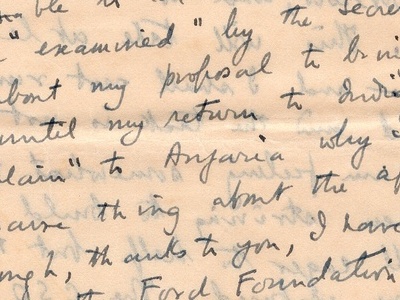 ble the secre
" examined " by the
about my proposal to
until my return to
lain" to Anjaria why
thing about the
ugh, thanks to you, I have
the Ford Foundation